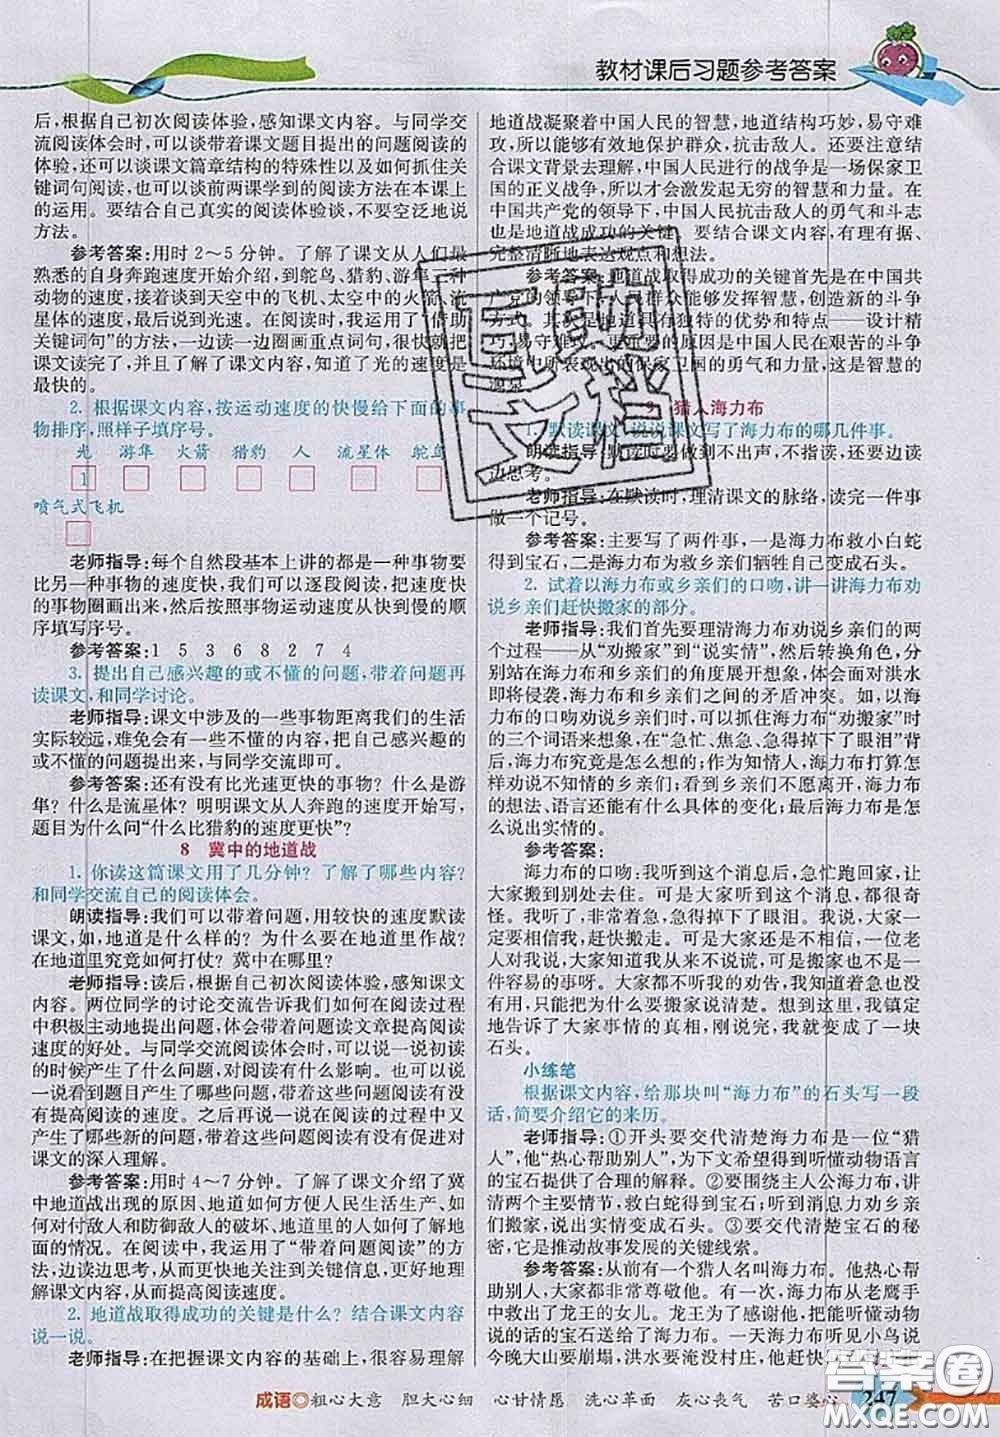 教材课后习题参考答案
后,根据自己初次阅读体验,感知课文内容。与同学交
流阅读体会时,可以谈带着课文题目提出的问题阅读的
体验,还可以谈课文篇章结构的特殊性以及如何抓住关
键词句阅读,也可以谈前两课学到的阅读方法在本课上
的运用。要结合自己真实的阅读体验谈,不要空泛地说
方法。
参考答案:用时 2～5 分钟。了解了课文从人们最
熟悉的自身奔跑速度开始介绍,到鸵鸟、猎豹、游隼一种
动物的速度,接着谈到天空中的飞机、太空中的火箭、流
星体的速度,最后说到光速。在阅读时,我运用了“借助
关键词句”的方法,一边读一边圈画重点词句,很快就把
课文读完了,并且了解了课文内容,知道了光的速度是
最快的。
2. 根据课文内容,按运动速度的快慢给下面的事
物排序,照样子填序号。
光 游隼 火箭 猎豹 人 流星体 鸵鸟
1
喷气式飞机
老师指导:每个自然段基本上讲的都是一种事物要
比另一种事物的速度快,我们可以逐段阅读,把速度快
的事物圈画出来,然后按照事物运动速度从快到慢的顺
序填写序号。
参考答案:1 5 3 6 8 2 7 4
3. 提出自己感兴趣的或不懂的问题,带着问题再
读课文,和同学讨论。
老师指导:课文中涉及的一些事物距离我们的生活
实际较远,难免会有一些不懂的内容,把自己感兴趣的
或不懂的问题提出来,与同学交流即可。
参考答案:还有没有比光速更快的事物？什么是游
隼？什么是流星体？明明课文从人奔跑的速度开始写,
题目为什么问“什么比猎豹的速度更快”？
8 冀中的地道战
1. 你读这篇课文用了几分钟？了解了哪些内容？
和同学交流自己的阅读体会。
朗读指导:我们可以带着问题,用较快的速度默读
课文,如,地道是什么样的？为什么要在地道里作战？
在地道里究竟如何打仗？冀中在哪里？
老师指导:读后,根据自己初次阅读体验,感知课文
内容。两位同学的讨论交流告诉我们如何在阅读过程
中积极主动地提出问题,体会带着问题读文章提高阅读
速度的好处。与同学交流阅读体会时,可以说一说初读
的时候产生了什么问题,对阅读有什么影响。也可以说
一说看到题目产生了哪些问题,带着这些问题阅读有没
有提高阅读的速度。之后再说一说在阅读的过程中又
产生了哪些新的问题,带着这些问题阅读有没有促进对
课文的深入理解。
参考答案:用时 4～7 分钟。了解了课文介绍了冀
中地道战出现的原因、地道如何方便人民生活生产、如
何对付敌人和防御敌人的破坏、地道里如何了解地
面的情况。在阅读中,我运用了“带着问题阅读”的方
法,边读边思考,从而更快地关注到关键信息、理解课文
内容,从而提高阅读速度。
2. 地道战取得成功的关键是什么？结合课文内容
说一说。
老师指导:在把握课文内容的基础上,很容易理解
地道战凝聚着中国人民的智慧,地道结构巧妙,易守难
攻,所以能够有效地保护群众,抗击敌人。还要注意结
合课文背景去理解,中国人民进行的战争是一场保家卫
国的正义战争,所以才会激发起无穷的智慧和力量。在
中国共产党的领导下,中国人民抗击侵略的勇气和斗志
也是地道战成功的关键。要结合课文内容,有理有据、
完整清晰地表达观点和想法。
参考答案:地道战取得成功的关键首先是在中国共
产党的领导下,人民群众能够发挥智慧,创造新的斗争
方式。其次是地道具有独特的优势和特点——设计精
巧、易守难攻。更重要的原因是中国人民在艰苦的斗争
环境中所表现出的保家卫国的勇气和力量,这是智慧的
源泉。
9 猎人海力布
1. 默读课文,说说课文写了海力布的哪几件事。
朗读指导:默读要做到不出声,不指读,还要边读
边思考。
老师指导:在默读时,理清课文的脉络,读完一件事
做一个记号。
参考答案:主要写了两件事,一是海力布救小白蛇
得到宝石,二是海力布为救乡亲们牺牲自己变成石头。
2. 试着以海力布或乡亲们的口吻,讲一讲海力布劝
说乡亲们赶快搬家的部分。
老师指导:我们首先要理清海力布劝说乡亲们的两
个过程——从“劝搬家”到“说实情”,然后转换角色,分
别站在海力布和乡亲们的角度展开想象,体会对洪水
即将侵袭,海力布和乡亲们之间的矛盾冲突。如,以海
力布的口吻劝说乡亲们时,可以抓住海力布“劝搬家”时
的三个词语来想象,在“急忙、焦急、急得掉下了眼泪”背
后,海力布究竟是怎么想的;作为知情人,海力布打算怎
样劝说不知情的乡亲们;看到乡亲们不相信他,海力布
的想法、语言还能有什么具体的变化;最后海力布是怎
么说出实情的。
参考答案:
海力布的口吻:听到这个消息后,急忙跑回家,让
大家搬到别处去住。可是,大家听到这个消息,都很奇
怪。我听了,非常着急,急得掉下了眼泪。我说,大家一
定要相信我,赶快搬走。可是大家还是不相信,一位老
人对我说,大家知道我从来不说谎,但是搬家可不是一
件容易的事呀。大家都不听我的劝告,我想着急也没
有用,只好把为什么要搬家说清楚。想到这里,我镇定
地告诉了大家事情的真相,刚说完,我就变成了一块
石头。
小练笔
根据课文内容,给那块叫“海力布”的石头写一段
话,简要介绍它的来历。
老师指导:①开头要交代清楚海力布是一位“猎
人”,他“热心帮助别人”,为下文希望得到听懂动物语言
的宝石提供了合理的解释。②要围绕主人公海力布,讲
清两个主要情节,救白蛇得到宝石;听到消息力劝乡亲们
搬家,说出实情变成石头。③要交代清楚宝石的秘
密,它是推动故事发展的关键线索。
参考答案:从前有一个猎人名叫海力布。他热心帮
助别人,大家都非常尊敬他。有一次,海力布从老鹰
手中救出了龙王的女儿。龙王为了感谢他,把能听懂动
物说的话的宝石送给了海力布。一天海力布听见小鸟说
今晚大山要崩塌,洪水要淹没村庄,他赶
成语◎粗心大意 胆大心细 心甘情愿 洗心革面 灰心丧气 苦口婆心
247
互助文档
答案圈
MXQE.COM